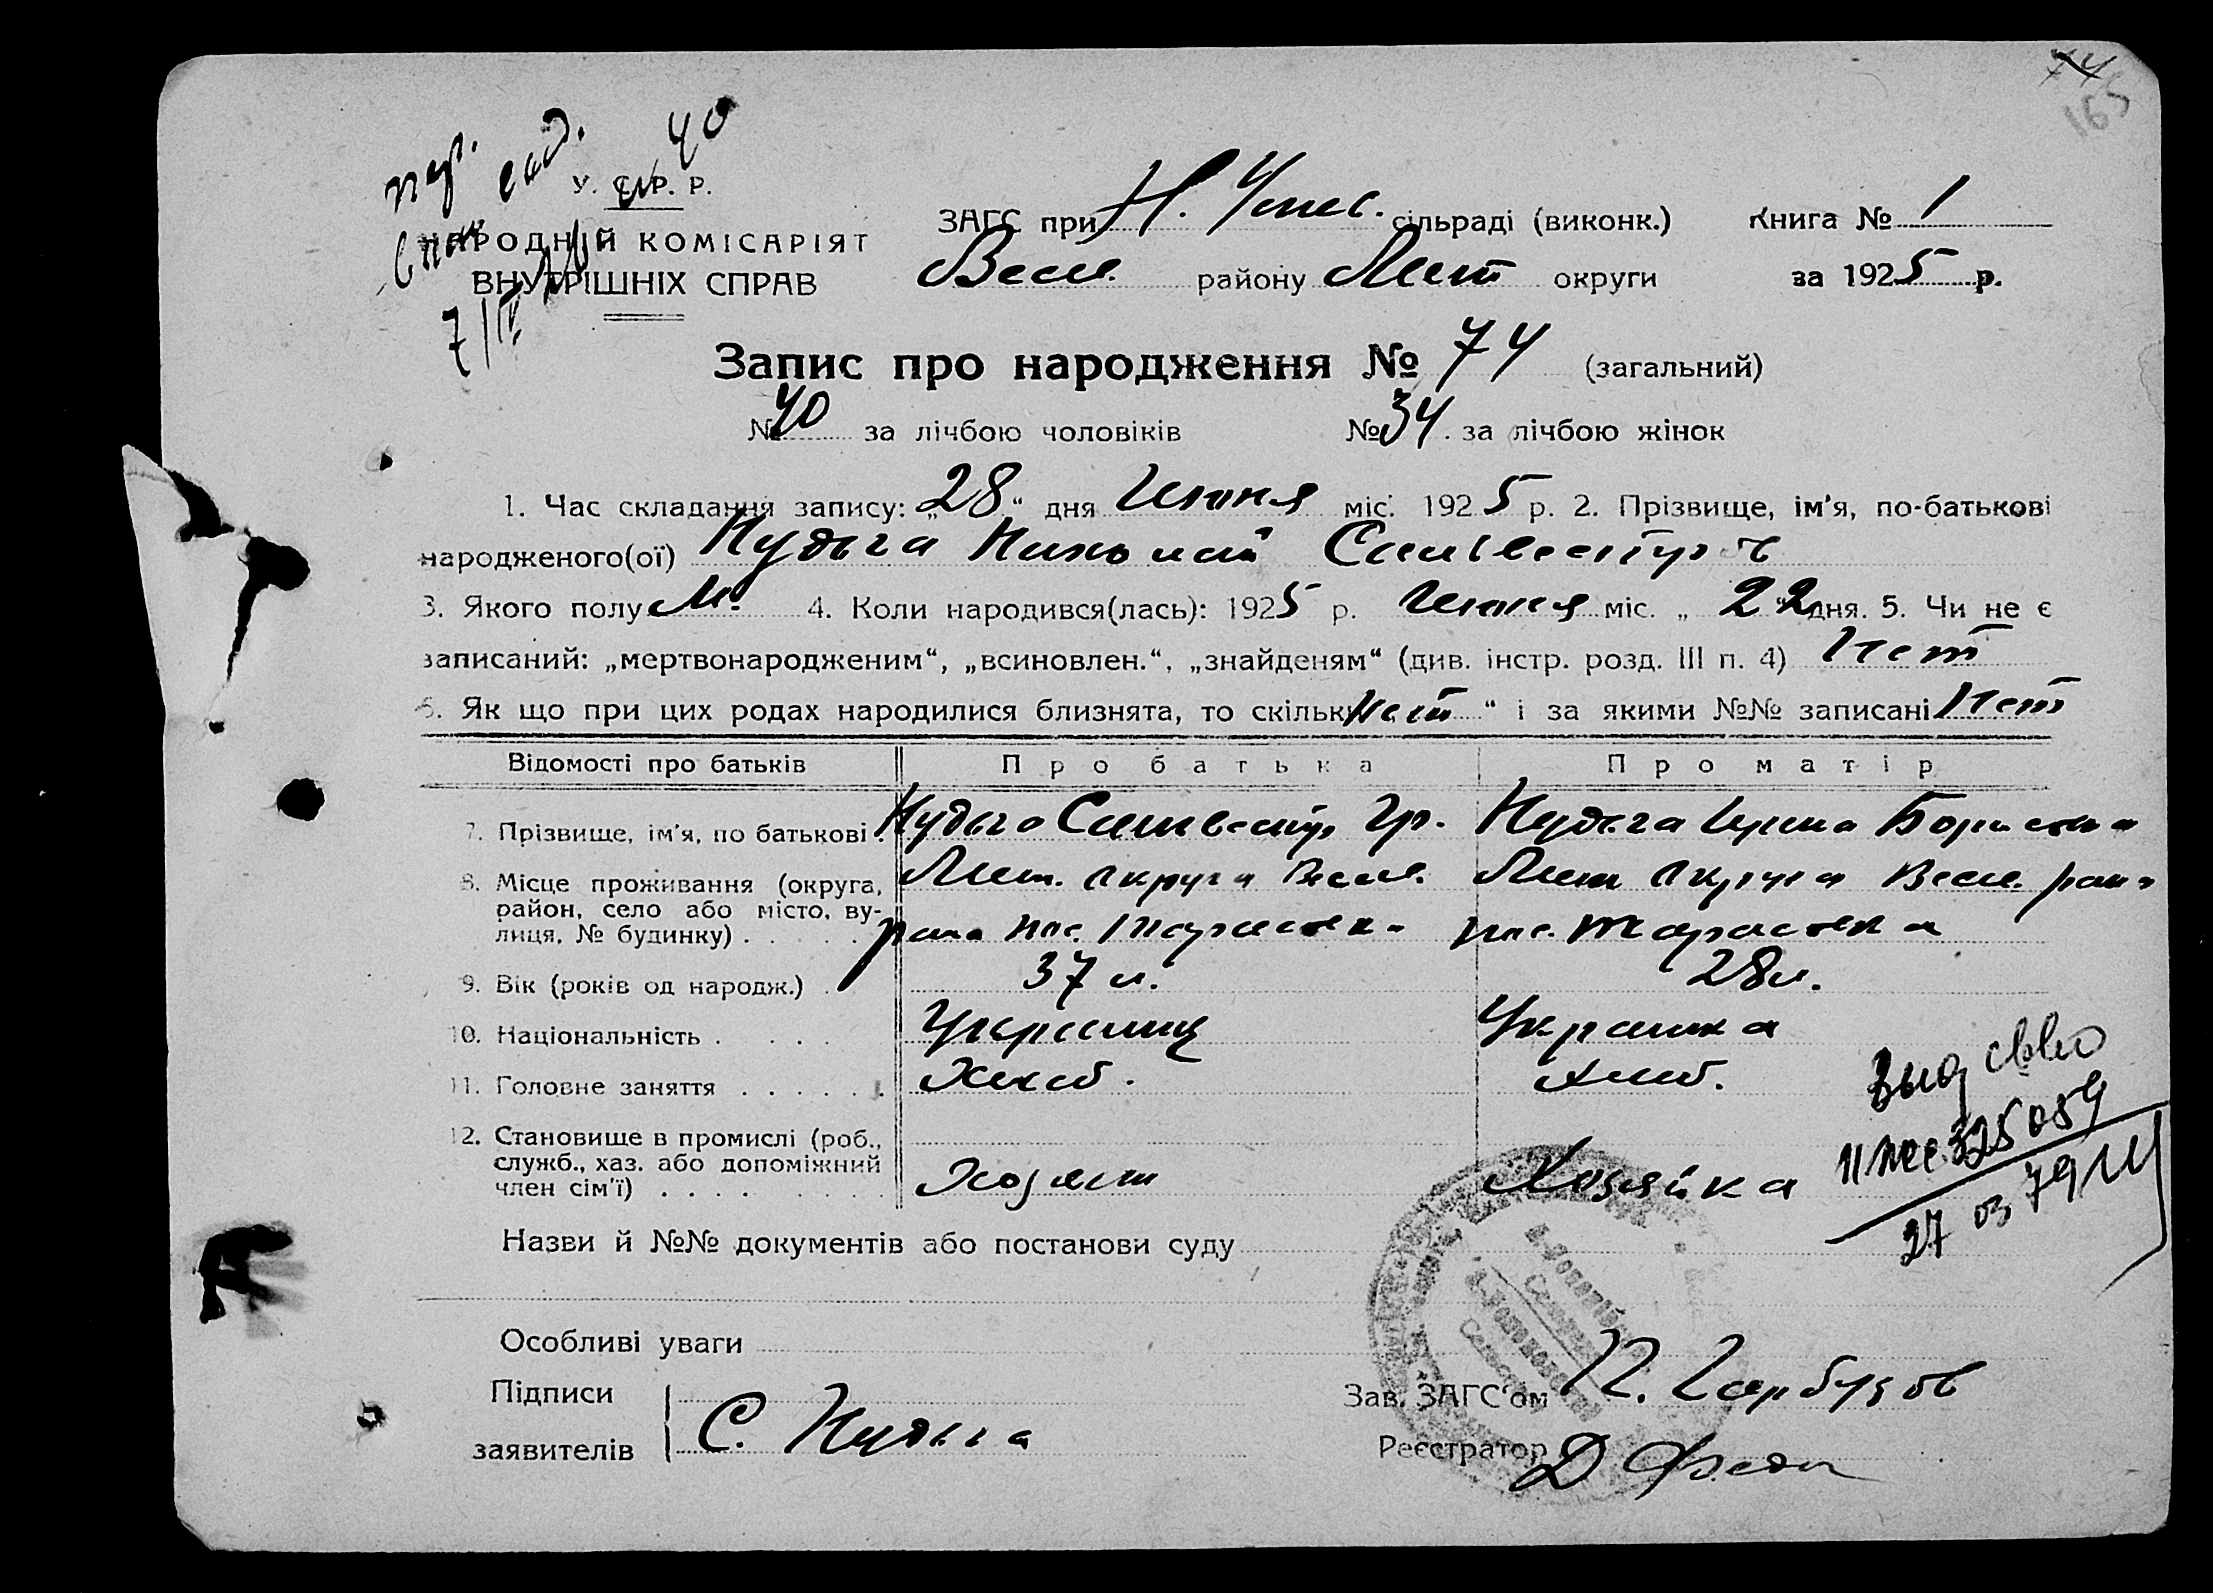 74
165
У. С. Р. Р.
НАРОДНІЙ КОМІСАРІЯТ
ВНУТРІШНІХ СПРАВ
ЗАГС при Н. Успес. сільраді (виконк.) Книга № 1
Весел. району Мелит округи за 1925 р.
7/IV
Запис про народження № 74 (загальний)
№ 40 за лічбою чоловіків № 34 за лічбою жінок
1. Час складання запису: „28“ дня Июня міс. 1925 р. 2. Прізвище, ім'я, по-батькові
народженого(ої) Нудьга Николай Сильвестров
3. Якого полу М. 4. Коли народився(лась): 1925 р. Июня міс. „22“ дня. 5. Чи не є
записаний: „мертвонародженим“, „всиновлен.“, „знайденям“ (див. інстр. розд. III п. 4) Нет
6. Як що при цих родах народилися близнята, то скільки Нет “ і за якими №№ записані Нет
Відомості про батьків Про батька Про матір
7. Прізвище, ім'я, по батькові . Нудьга Сильвестр Гр. Нудьга Ирина Борисовна
8. Місце проживання (округа, Мелит. округа Весел. Мелит округа Весел. района
район, село або місто, ву-
лиця, № будинку) . . . . . района пос. Тарасовка пос. Тарасовка
9. Вік (років од народж.) . 37 л. 28 л.
10. Національність . . . . . Украинец Украинка
11. Головне заняття . . . . . . Хлеб. Хлеб.
12. Становище в промислі (роб.,
служб., хаз. або допоміжний
член сім'ї) . . . . Хозяин Хозяйка
Выд св-во
325059
27 03 79
Назви й №№ документів або постанови суду
Особливі уваги
Підписи
заявителів С. Нудьга
Зав. ЗАГС'ом П. Гарбузов
Реєстратор Д